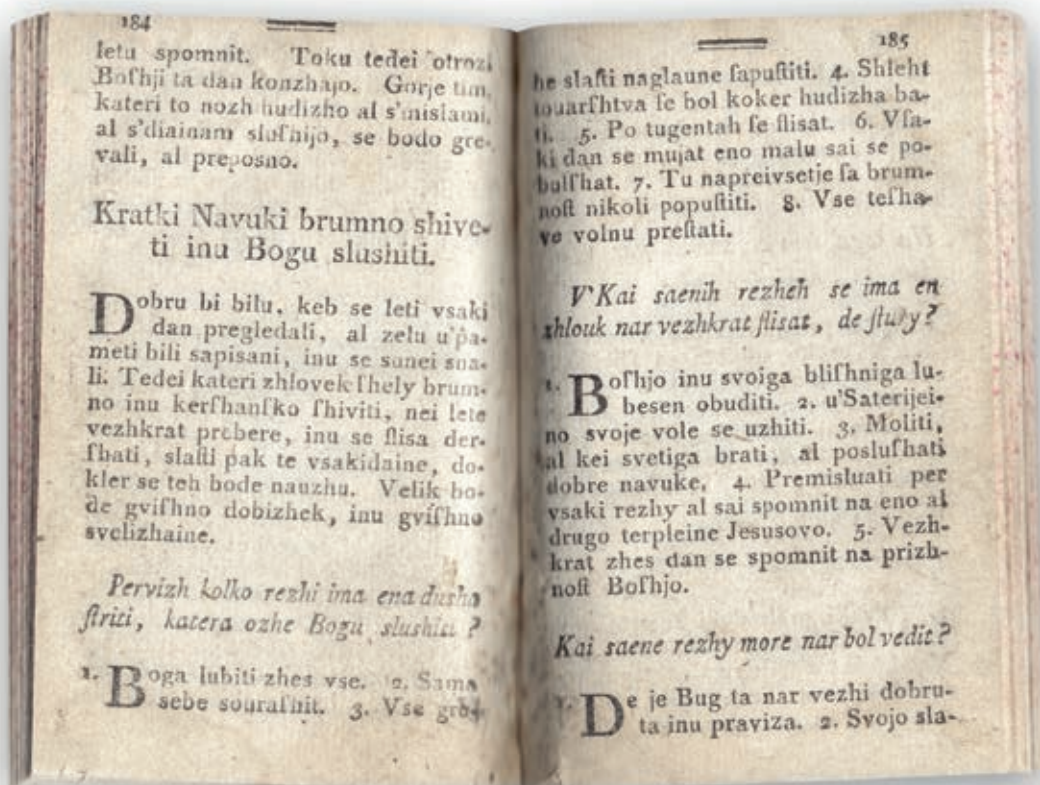 184
letu spomnit. Toku tedei otrozi
Boſhji ta dan konzhajo. Gorje tim,
kateri to nozh hudizho al s'mislami,
al s'diainam sluſhijo, se bodo gre-
vali, al preposno.
Kratki Navuki brumno shive-
ti inu Bogu slushiti.
Dobru bi bilu, keb se leti vsaki
dan pregledali, al zelu u'pa-
meti bili sapisani, inu se sunei sna-
li. Tedei kateri zhlovek ſhely brum-
no inu kerſhanſko ſhiviti, nei lete
vezhkrat prebere, inu se ſlisa der-
ſhati, slaſti pak te vsakidaine, do-
kler se teh bode nauzhu. Velik bo-
de gviſhno dobizhek, inu gviſhno
svelizhaine.
Pervizh kolko rezhi ima ena dusha
ſtriti, katera ozhe Bogu slushiti ?
1. Boga lubiti zhes vse. 2. Sama
sebe souraſhit. 3. Vse
185
slaſti naglaune ſapuſtiti. 4. Shleht
touarſhtva ſe bol koker hudizha ba-
ti. 5. Po tugentah ſe ſlisat. 6. Vſa-
ki dan se mujat eno malu sai se po-
bulſhat. 7. Tu napreivsetje ſa brum-
noſt nikoli popuſtiti. 8. Vse teſha-
ve volnu preſtati.
V'Kai saenih rezheh se ima en
zhlouk nar vezhkrat ſlisat, de
1. Boſhjo inu svoiga bliſhniga lu-
besen obuditi. 2. u'Saterijei-
no svoje vole se uzhiti. 3. Moliti,
al kei svetiga brati, al posluſhati
dobre navuke. 4. Premisluati per
vsaki rezhy al sai spomnit na eno al
drugo terpleine Jesusovo. 5. Vezh-
krat zhes dan se spomnit na prizh-
noſt Boſhjo.
Kai saene rezhy more nar bol vedit ?
1. De je Bug ta nar vezhi dobru-
ta inu praviza. 2. Svojo sla-